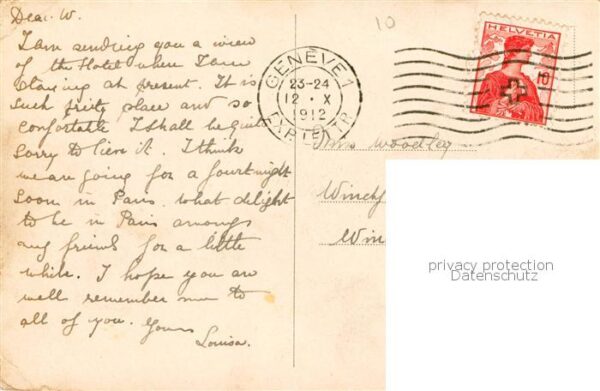 Dear W.
I am sending you a wiew
of the Hotel where I am
staying at present. It is
such prity place and so
confortable I shall be quite
sorry to lieve it. I think
we are going for a fourtnight
soon in Paris. what delight
to be in Paris amongs
my friends for a little
while. I hope you are
well remember me to
all of you. Yours
Louisa.
10
GENÈVE 1
23-24
12 · X
1912
EXP. LETTR.
HELVETIA
10
Woodley
Winchf
Win
privacy protection
Datenschutz